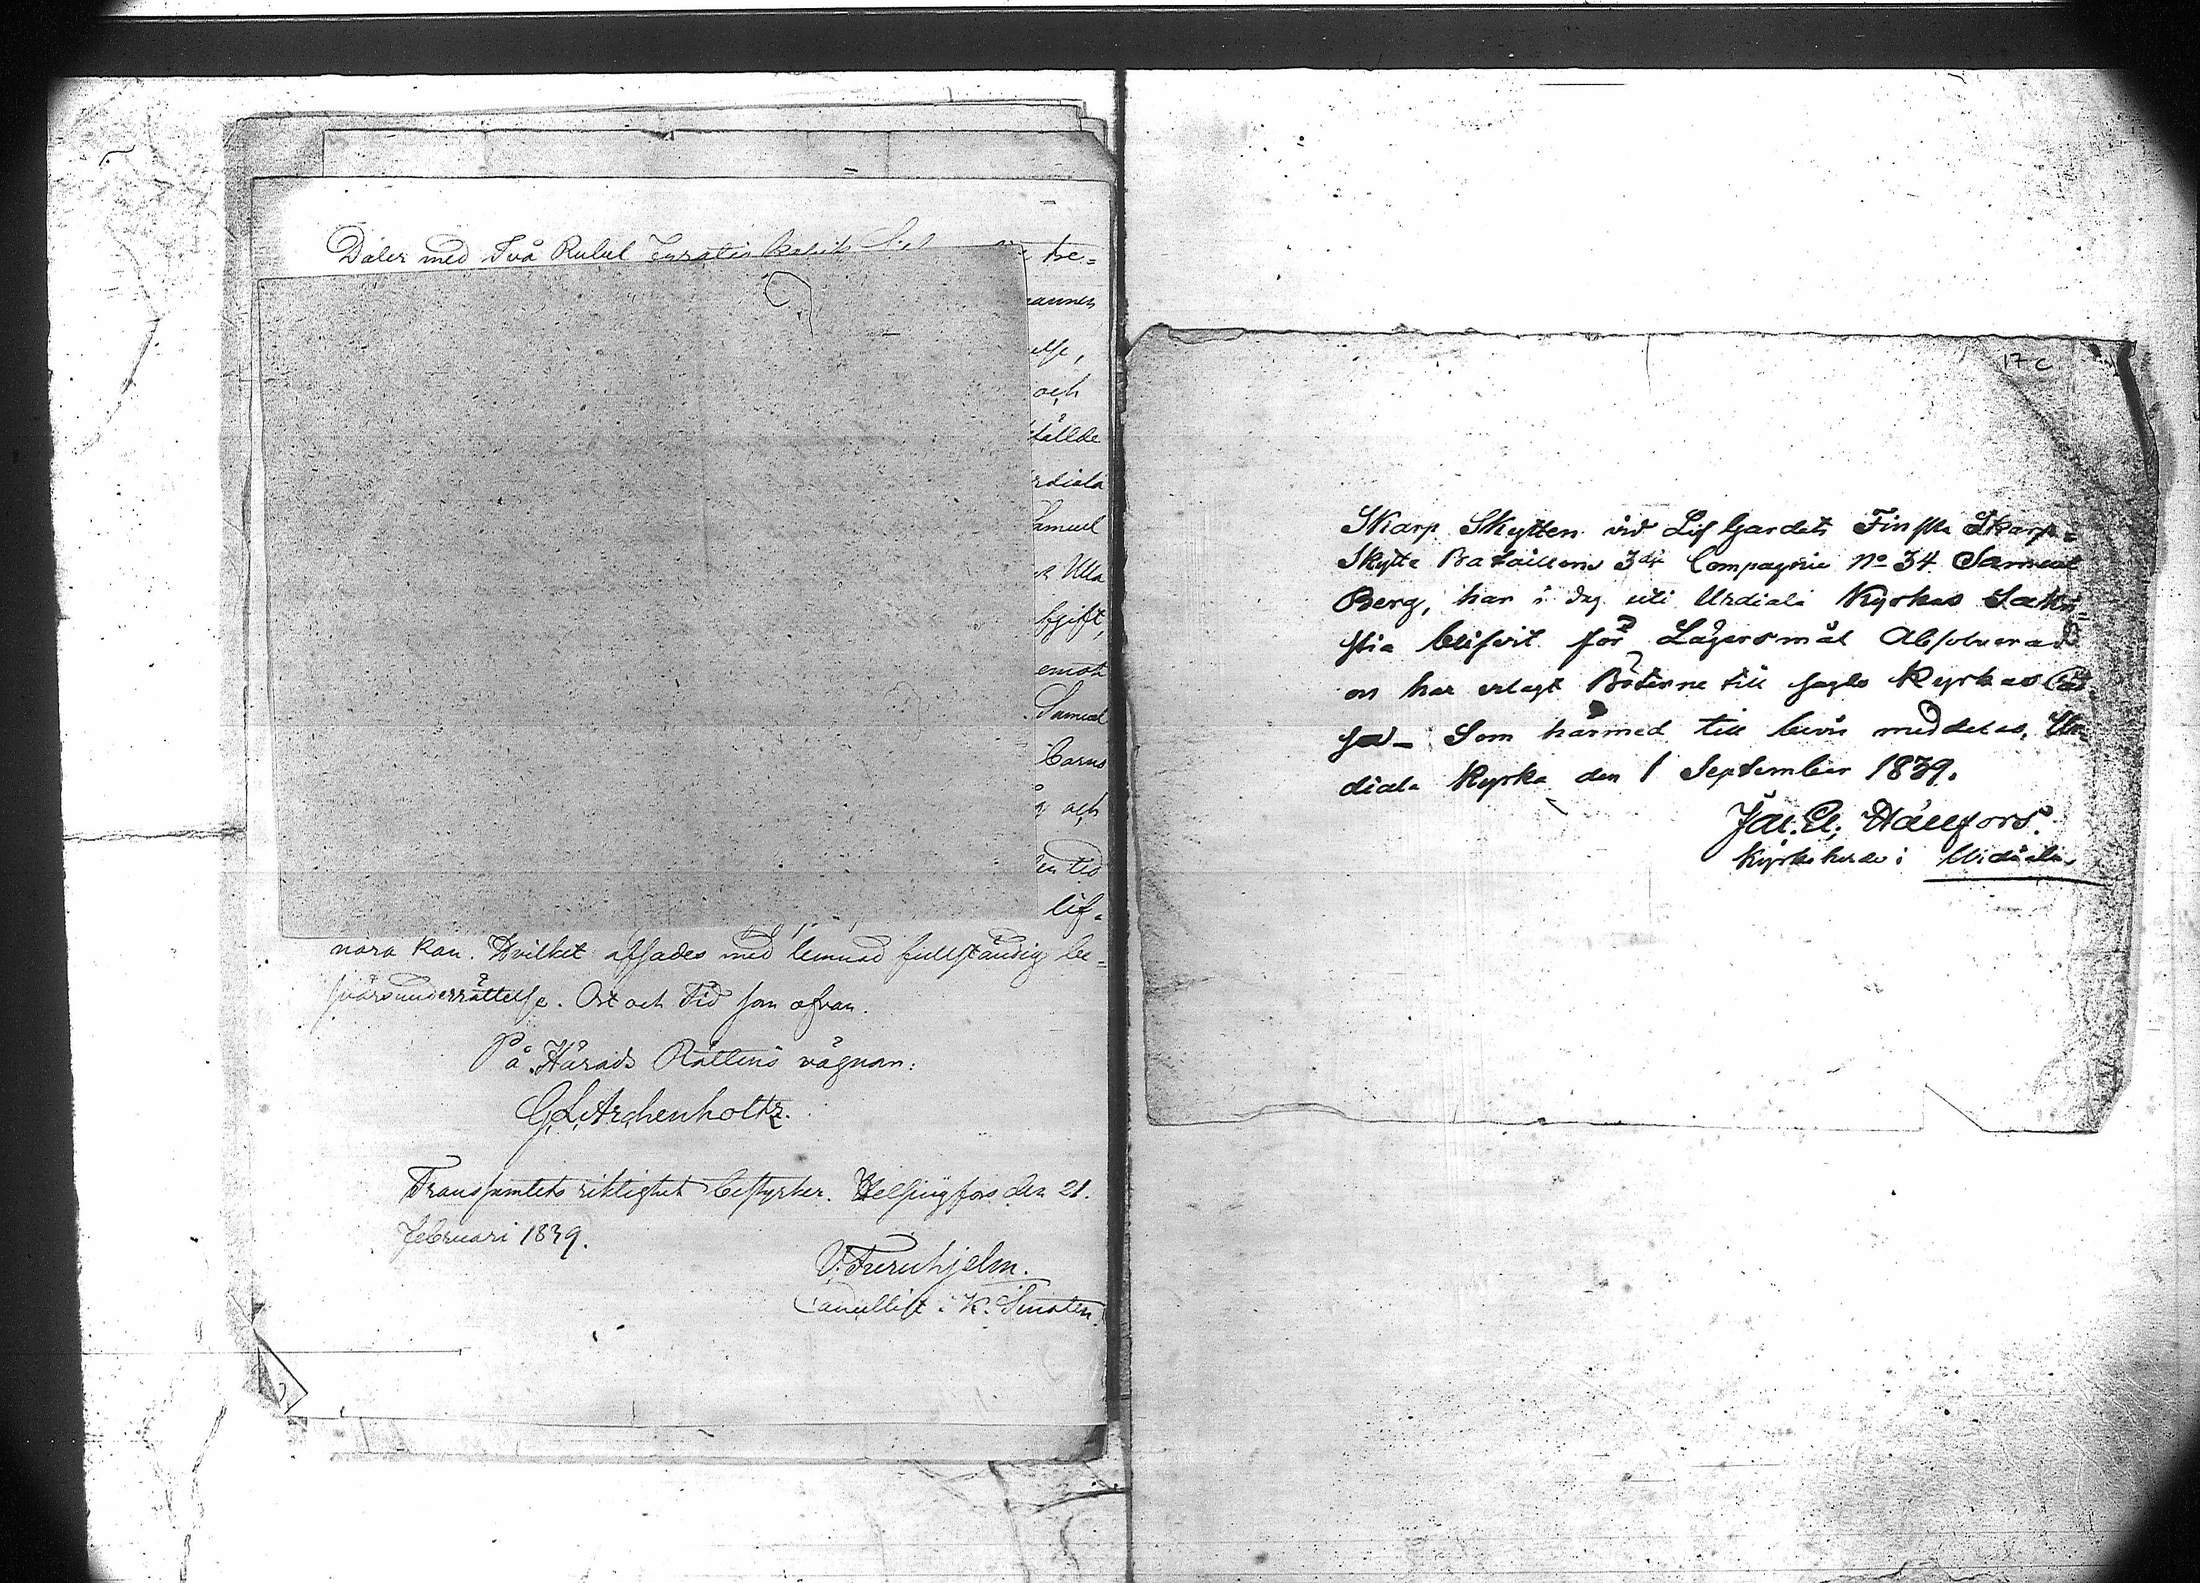 Daler med Två Rubel Fyratio Kopek
tre=
annes
else,
och
fällde
rdiala
Samuel
Ulla
fgift,
emot
Samuel
Barns
och
en tid
lif-
nära kan. Hvilket afsades med lemnad fullständig be-
svärsunderrättelse. Ort och Tid som ofvan.
På Härads Rättens vägnar:
G. L. Archenholtz.
Transsumtets riktighet bestyrker. Helsingfors den 21.
Februari 1839.
V. Furuhjelm.
Cancellist i K. Senaten.
17 c
Skarp Skytten vid Lif Gardets Finska Skarp=
Skytte Bataillons 3dje Compagnie No 34 Samuel
Berg, har i dag uti Urdiala Kyrkas Sakri=
stia blifvit för Lägersmål Absolverad
har erlagt Böterne till sagde Kyrkas Cas
sa - Som härmed till bevis meddelas, Ur=
diala Kyrka den 1 September 1839.
Hällfors.
Kyrkoherde i Urdiala.